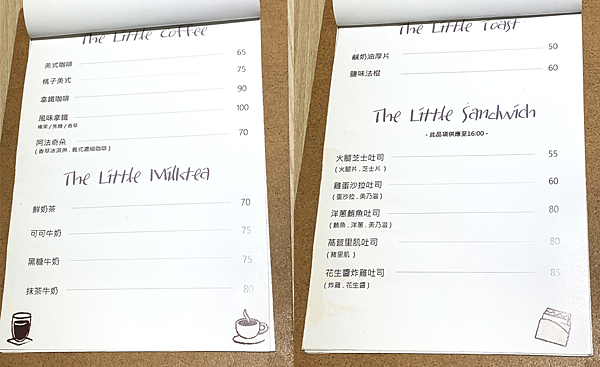 The Little Coffee
美式咖啡 65
桃子美式 75
拿鐵咖啡 90
風味拿鐵 100
榛果 / 焦糖 / 香草
阿法奇朵 70
( 香草冰淇淋 . 義式濃縮咖啡 )
The Little Milktea
鮮奶茶 70
可可牛奶 75
黑糖牛奶 75
抹茶牛奶 80
The Little Toast
鹹奶油厚片 50
鹽味法棍 60
The Little Sandwich
- 此品項供應至16:00 -
火腿芝士吐司 55
( 火腿片 . 芝士片 )
雞蛋沙拉吐司 60
( 蛋沙拉 . 美乃滋 )
洋蔥鮪魚吐司 80
( 鮪魚 . 洋蔥 . 美乃滋 )
萵苣里肌吐司 80
( 豬里肌 )
花生醬炸雞吐司 85
( 炸雞 . 花生醬 )